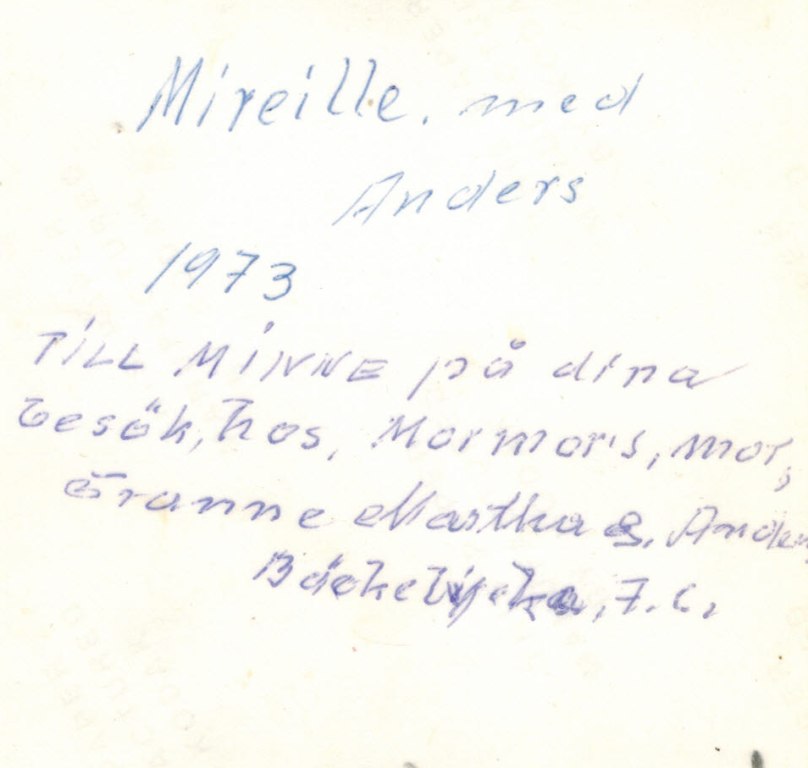 Mireille. med
Anders
1973
TILL MINNE på dina
besök, hos, Mormor's, mor,
Granne Martha &, Ander
7. C.